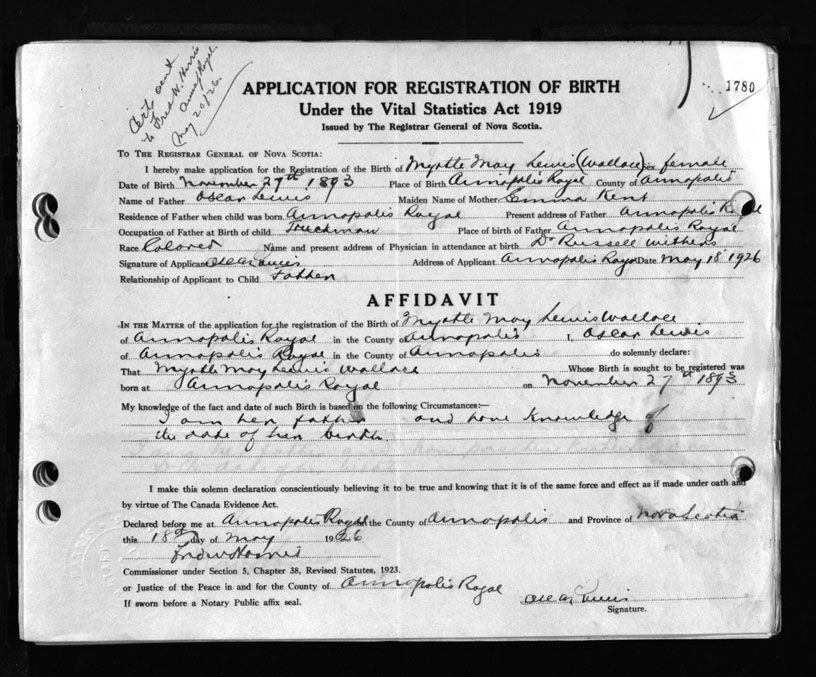 Cert. sent
to Fred W. Harris
Annap. Royal.
May 20/26.
1780
APPLICATION FOR REGISTRATION OF BIRTH
Under the Vital Statistics Act 1919
Issued by The Registrar General of Nova Scotia.
To The Registrar General of Nova Scotia:
I hereby make application for the Registration of the Birth of Myrtle May Lewis (Wallace) sex female
Date of Birth November 27th 1893 Place of Birth Annapolis Royal County of Annapolis
Name of Father Oscar Lewis Maiden Name of Mother Emma Kent
Residence of Father when child was born Annapolis Royal Present address of Father Annapolis Royal
Occupation of Father at Birth of child Truckman Place of birth of Father Annapolis Royal
Race Colored Name and present address of Physician in attendance at birth Dr Russell Withers
Signature of Applicant Oscar Lewis Address of Applicant Annapolis Royal Date May 18 1926
Relationship of Applicant to Child Father
AFFIDAVIT
In the Matter of the application for the registration of the Birth of Myrtle May Lewis Wallace
of Annapolis Royal in the County of Annapolis I, Oscar Lewis
of Annapolis Royal in the County of Annapolis do solemnly declare:
That Myrtle May Lewis Wallace Whose Birth is sought to be registered was
born at Annapolis Royal on November 27th 1893
My knowledge of the fact and date of such Birth is based on the following Circumstances:—
I am her father and have Knowledge of
the date of her birth
I make this solemn declaration conscientiously believing it to be true and knowing that it is of the same force and effect as if made under oath and
by virtue of The Canada Evidence Act.
Declared before me at Annapolis Royal in the County of Annapolis and Province of Nova Scotia
this 18th day of May 1926
Fred W Harris
Commissioner under Section 5, Chapter 38, Revised Statutes, 1923.
or Justice of the Peace in and for the County of Annapolis Royal
If sworn before a Notary Public affix seal.
Oscar Lewis
Signature.